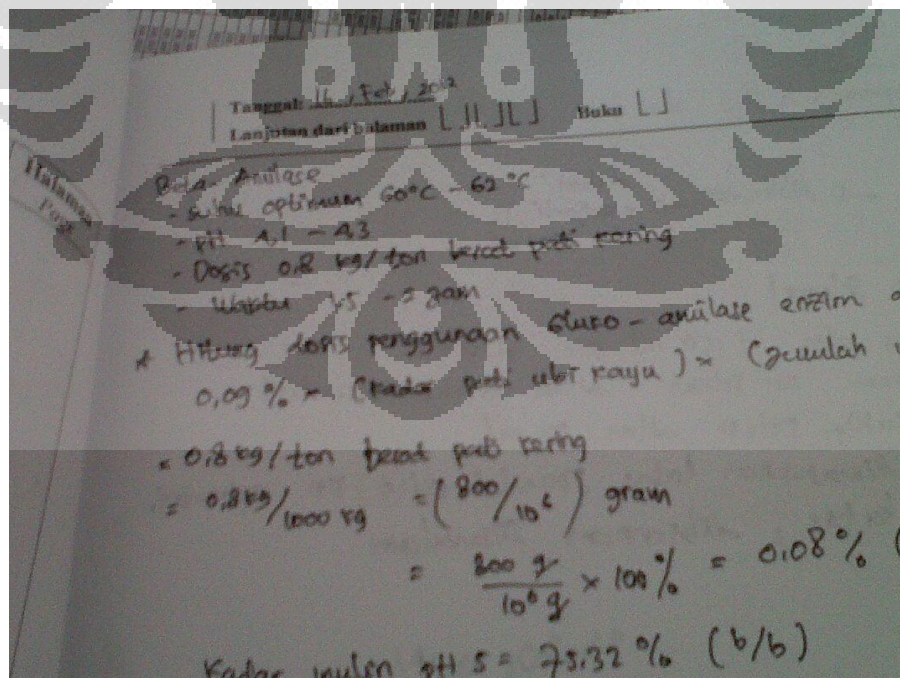 Tanggal: 16, Feb, 2012
Lanjutan dari halaman Buku
Halaman
Beta-Amilase
- Suhu optimum 60°C - 62°C
- pH 4,1 - 4,3
- Dosis 0,8 kg/ton berat pati kering
- Waktu jam
* Hitung dosis penggunaan Gluko-amilase enzim
0,09 % × (kadar pati ubi kayu) × (jumlah
= 0,8 kg/ton berat pati kering
= 0,8 kg/1000 kg = (800/10⁶) gram
= 800 g/10⁶ g × 100% = 0,08% (
Kadar inulin pH 5 = 75,32 % (b/b)